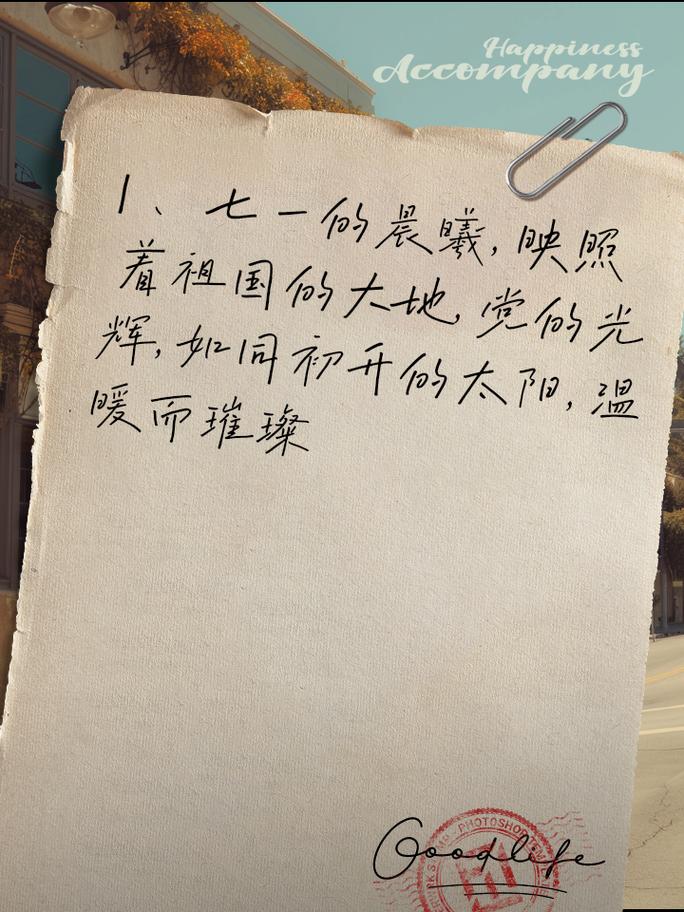 Happiness
Accompany
1、七一的晨曦,映照
着祖国的大地,党的光
辉,如同初升的太阳,温
暖而璀璨
PHOTOSHOP
Goodlife